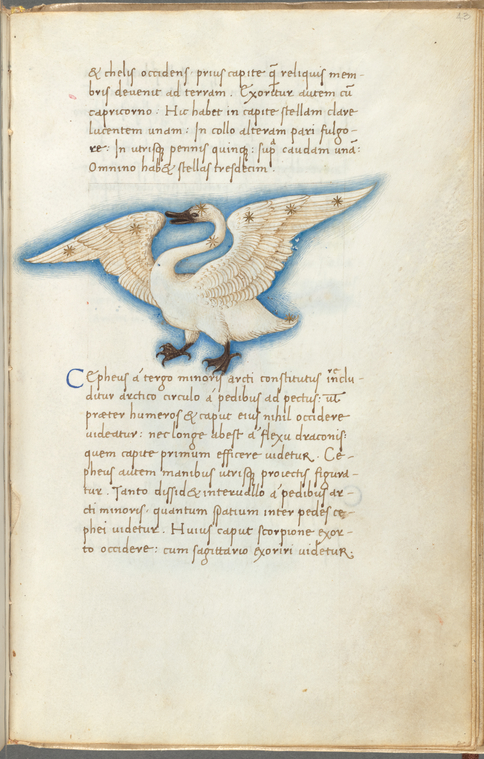 & chelis occidens · prius capite q̃ reliquis mem-
bris devenit ad terram . Exoritur autem cũ
capricorno : Hic habet in capite stellam clare
lucentem unam : In collo alteram pari fulgo-
re : In utrisq; pennis quinq; : sup̃ caudam unã :
Omnino hab& stellas tresdecim .
Cepheus á tergo minoris arcti constitutus inclu-
ditur arctico circulo á pedibus ad pectus : ut
præter humeros & caput eius nihil occidere
videatur : nec longe abest á flexu draconis :
quem capite primum efficere videtur . Ce-
pheus autem manibus utrisq; proiectis figura-
tur . Tanto dissid& intervallo á pedibus ar-
cti minoris · quantum spatium inter pedes ce-
phei videtur . Huius caput scorpione exor-
to occidere : cum sagittario exoriri videtur :